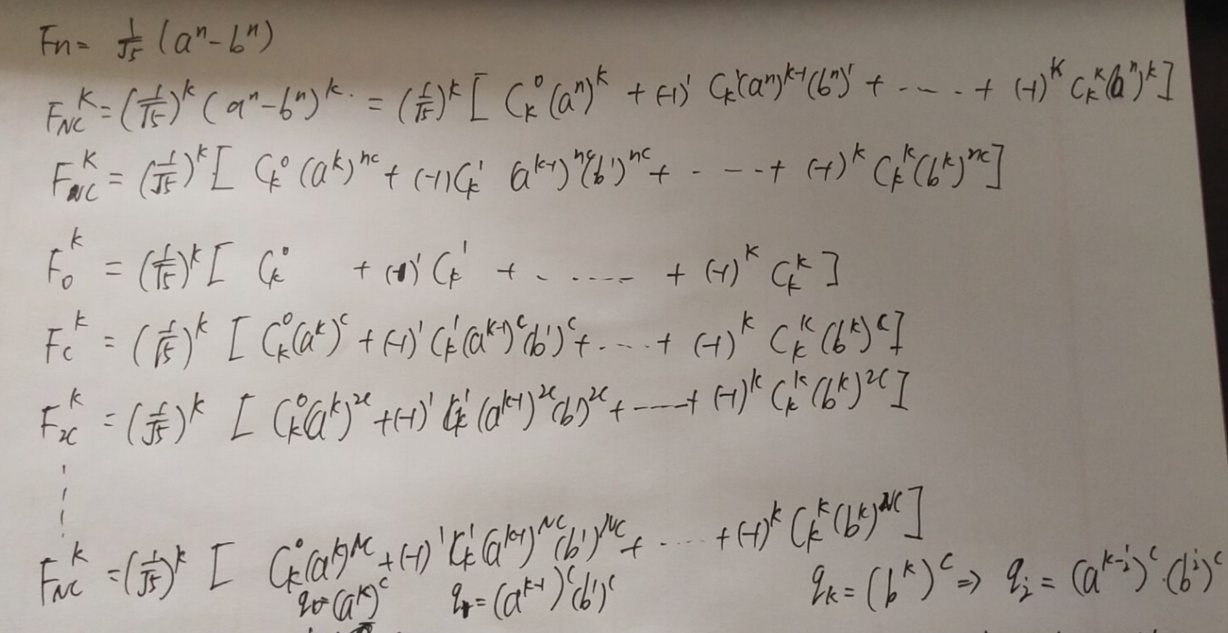 Fn = 1/√5 (aⁿ - bⁿ)
F_NC^k = (1/√5)^k (aⁿ - bⁿ)^k. = (1/√5)^k [ C_k^0 (aⁿ)^k + (-1)^1 C_k^1 (aⁿ)^{k-1} (bⁿ)^1 + ---- + (-1)^k C_k^k (bⁿ)^k ]
F_NC^k = (1/√5)^k [ C_k^0 (a^k)^{nc} + (-1) C_k^1 (a^{k-1})^{nc} (b^1)^{nc} + ---- + (-1)^k C_k^k (b^k)^{nc} ]
F_0^k = (1/√5)^k [ C_k^0 + (-1)^1 C_k^1 + ------ + (-1)^k C_k^k ]
F_C^k = (1/√5)^k [ C_k^0 (a^k)^c + (-1)^1 C_k^1 (a^{k-1})^c (b^1)^c + ---- + (-1)^k C_k^k (b^k)^c ]
F_2C^k = (1/√5)^k [ C_k^0 (a^k)^{2c} + (-1)^1 C_k^1 (a^{k-1})^{2c} (b)^{2c} + ---- + (-1)^k C_k^k (b^k)^{2c} ]
F_NC^k = (1/√5)^k [ C_k^0 (a^k)^{NC} + (-1)^1 C_k^1 (a^{k-1})^{NC} (b^1)^{NC} + ---- + (-1)^k C_k^k (b^k)^{NC} ]
q_0 = (a^k)^c q_1 = (a^{k-1})^c (b^1)^c q_k = (b^k)^c ⇒ q_i = (a^{k-i})^c · (b^i)^c